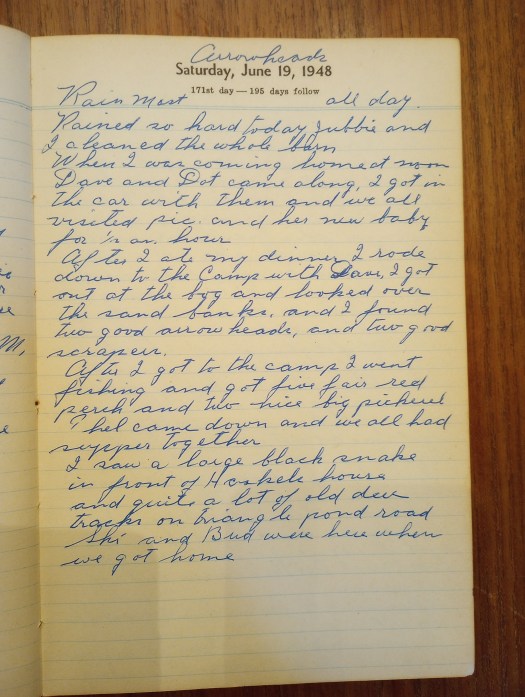 Arrowheads
Saturday, June 19, 1948
171st day — 195 days follow
Rain Most all day.
Rained so hard today Jubbie and
I cleaned the whole barn
When I was coming home at noon
Dave and Dot came along, I got in
the car with them and we all
visited pic. and her new baby
for ½ an. hour
After I ate my dinner I rode
down to the Camp with Dave, I got
out at the bog and looked over
the sand banks. and I found
two good arrow heads, and two good
scrapers.
After I got to the camp I went
fishing and got five fair red
perch and two nice big pickerel
hel came down and we all had
supper together
I saw a large black snake
in front of house
and quite a lot of old deer
tracks on triangle pond road
Ski and Bud were here when
we got home
M,